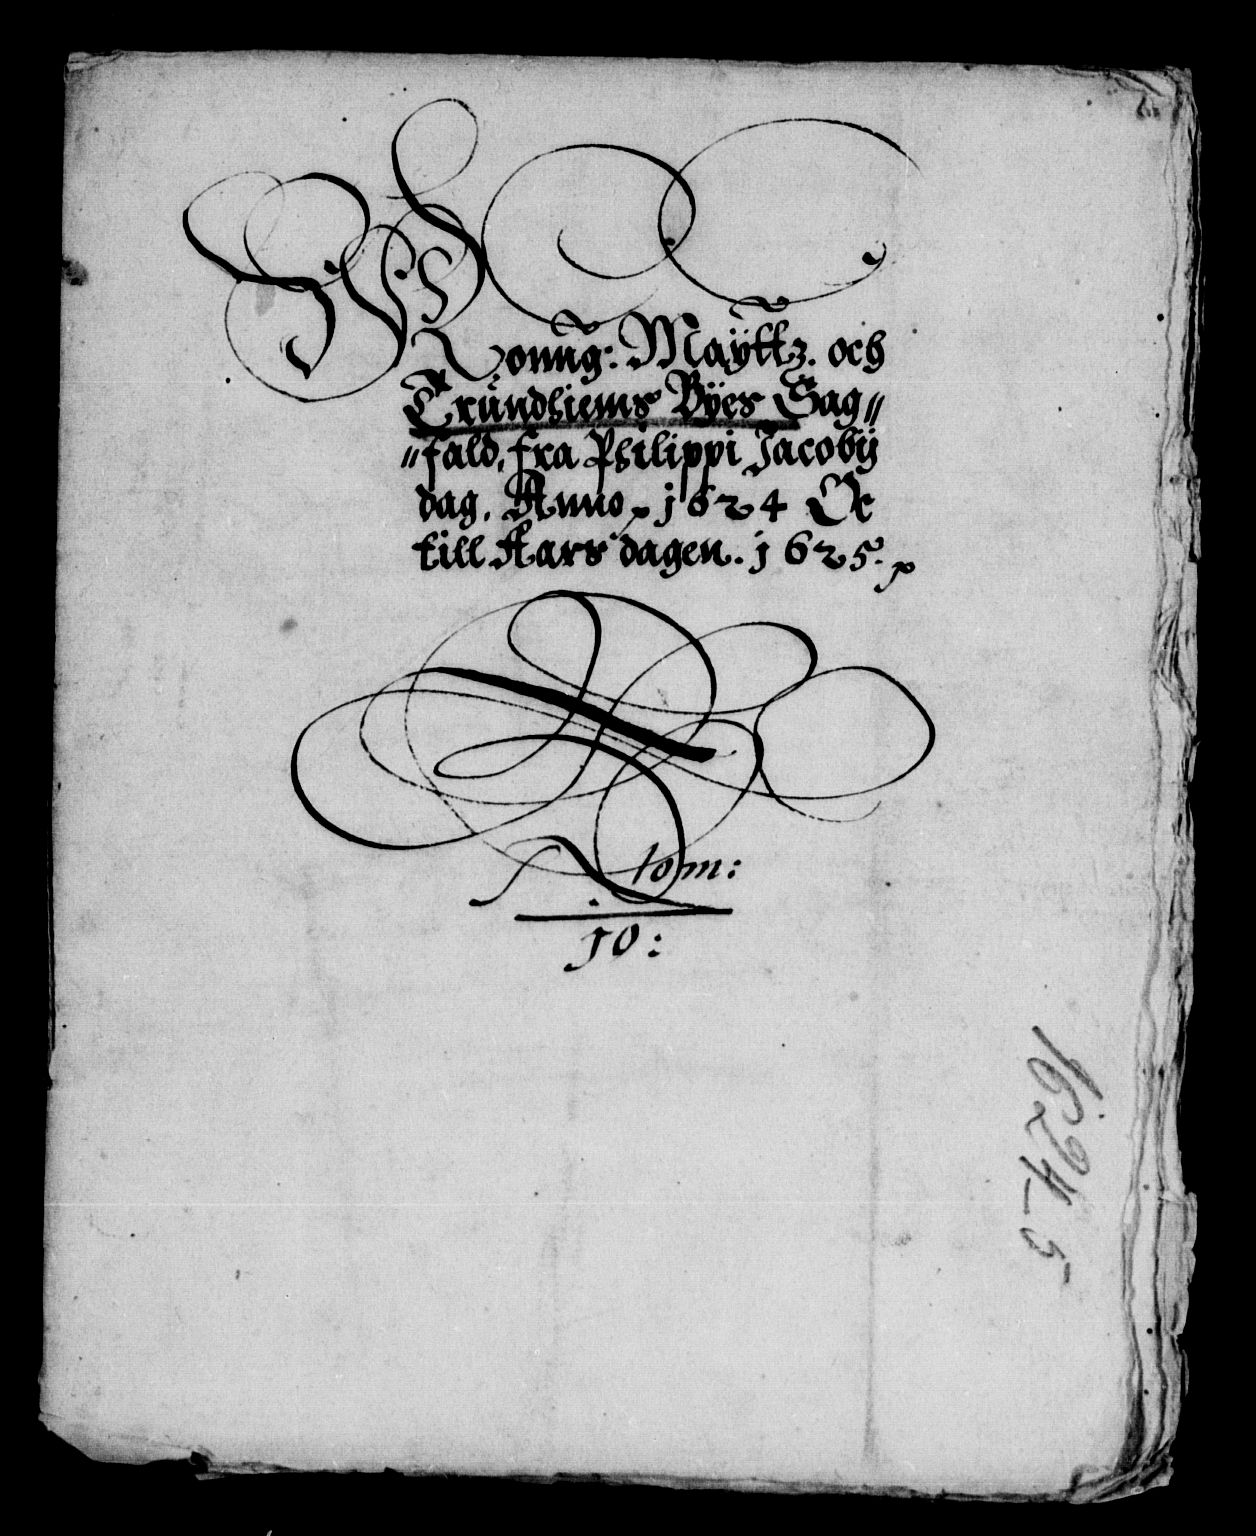 Konng: Maÿttz. och
Trundhiems Bÿes Sag//
//fald, fra Philippi Jacobij
dag. Anno 1624 Oc
till Aars dagen. 1625.
10:
1624-5